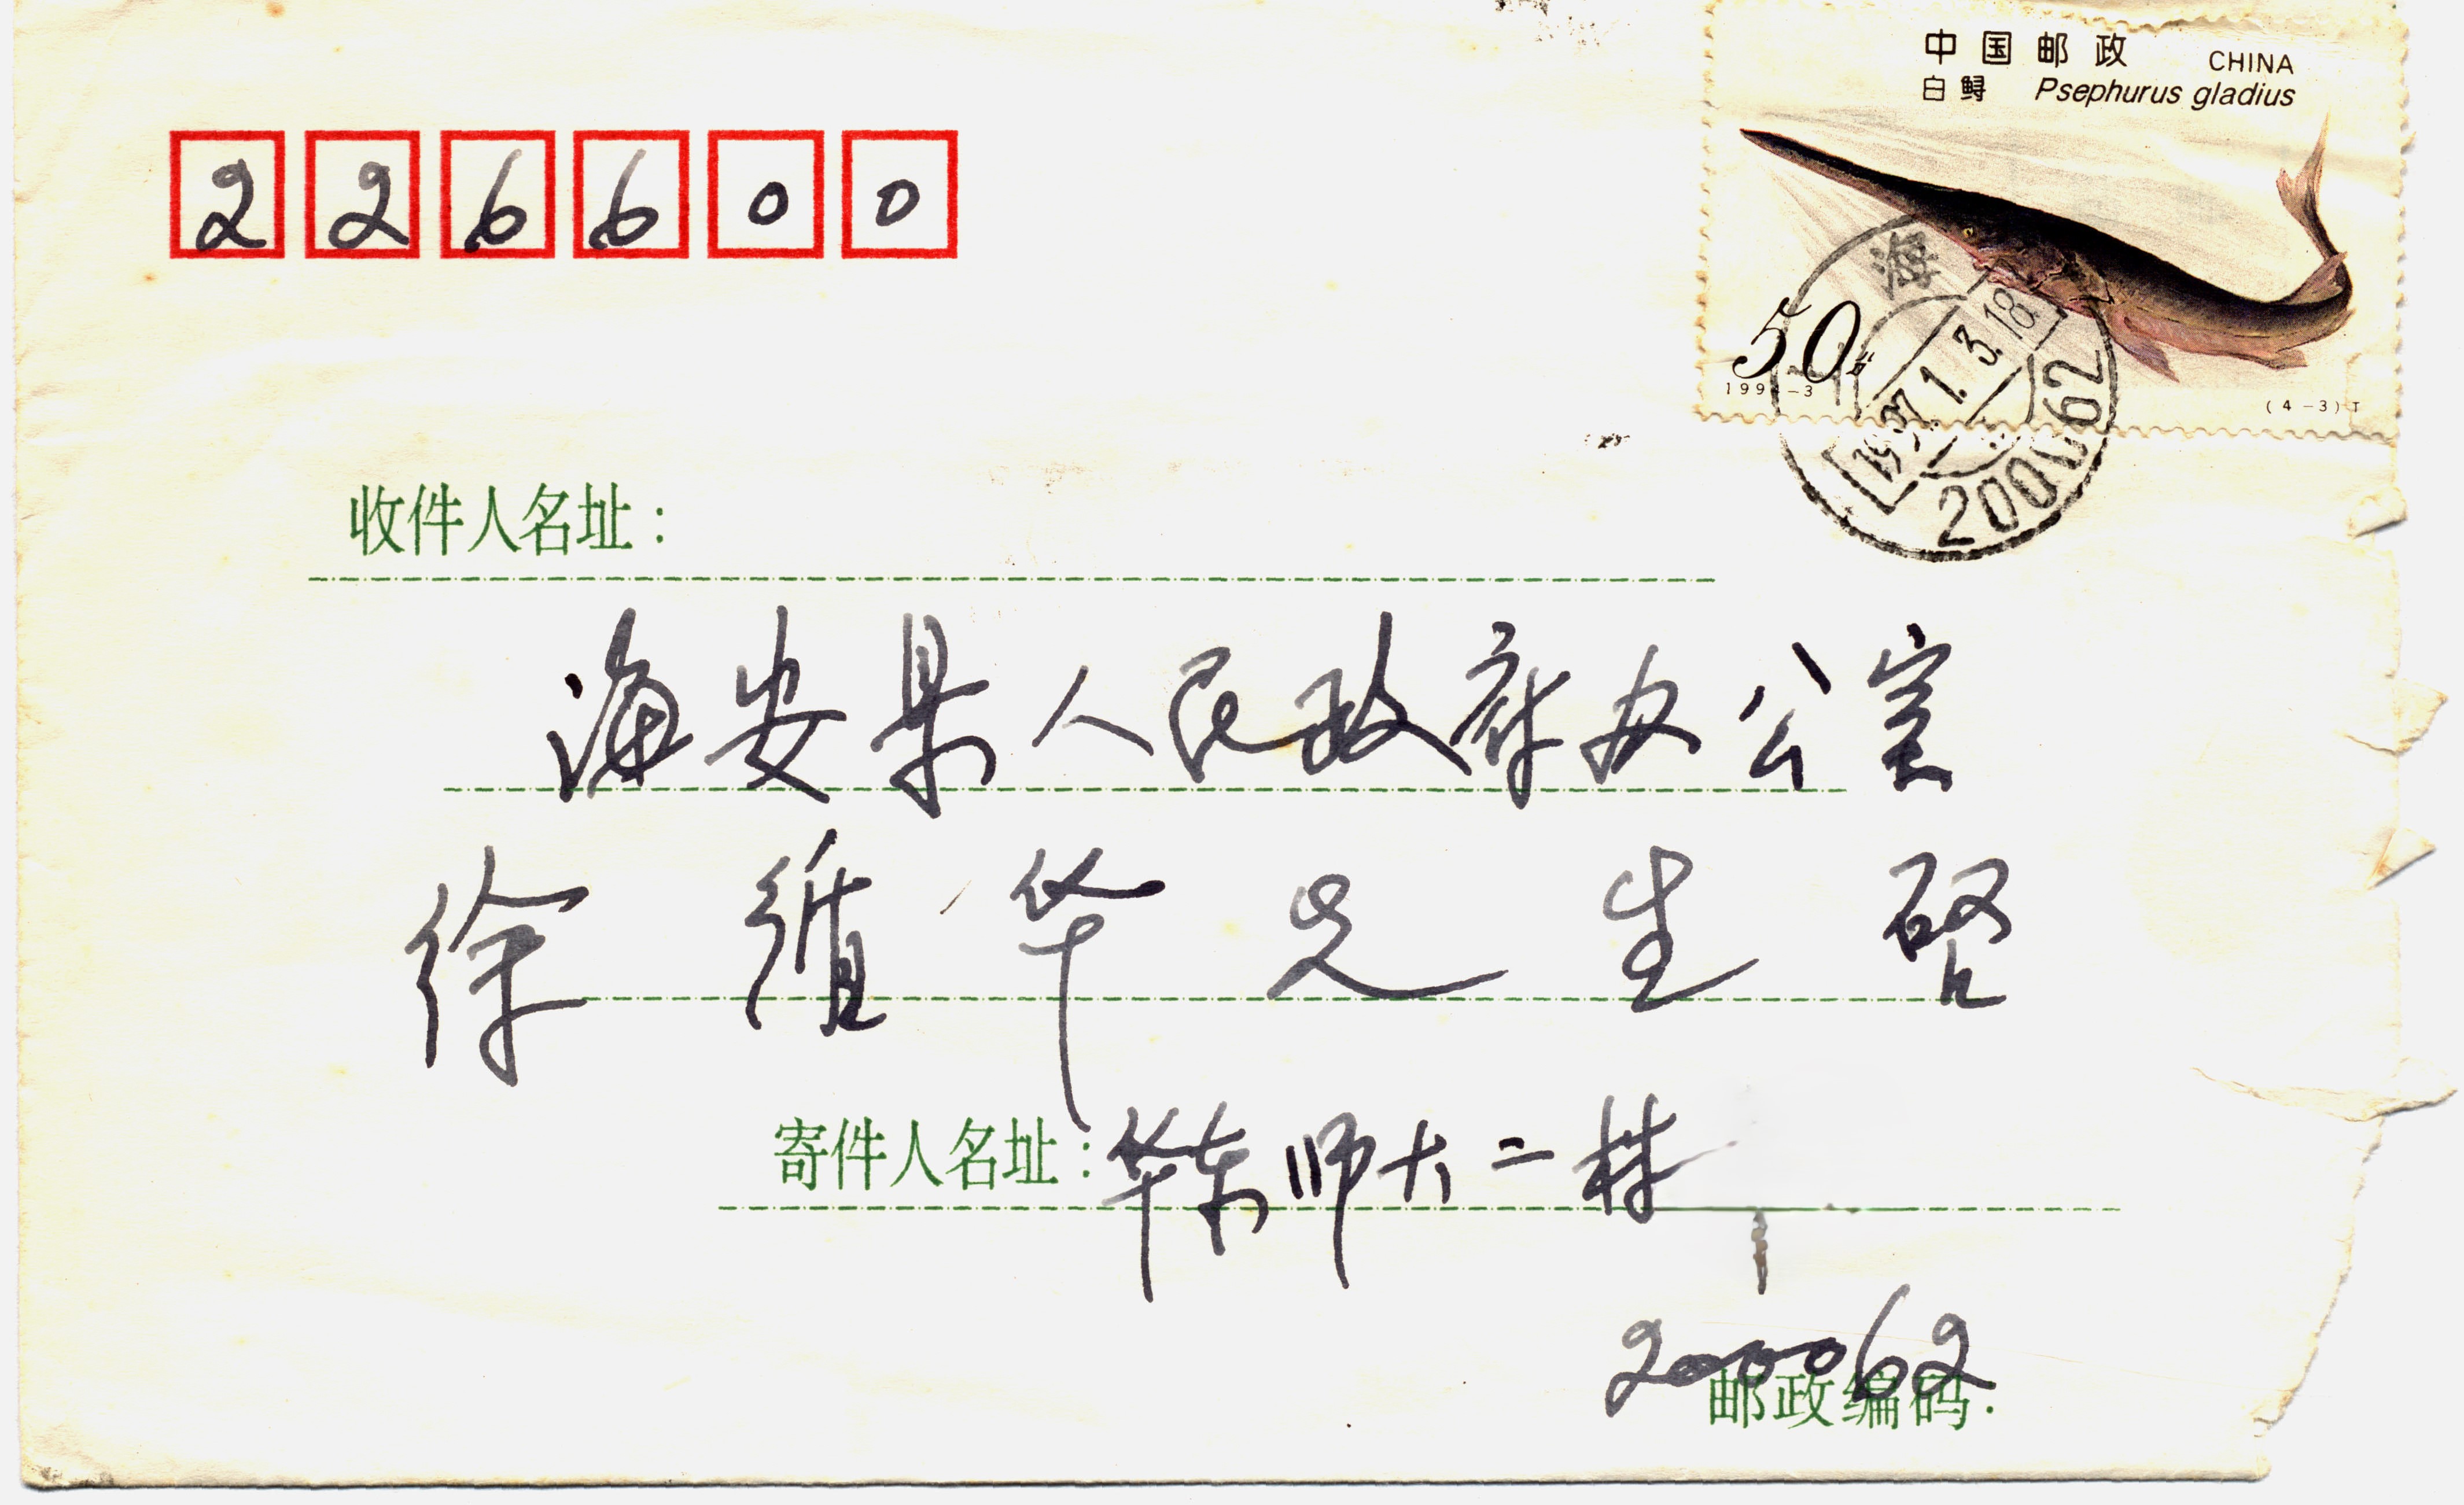 中国邮政 CHINA
白鲟 Psephurus gladius
226600
50分
1994-3
(4-3)T
上海
1997.1.3.18
200062
收件人名址:
海安县人民政府办公室
徐循华先生启
寄件人名址:华东师大二村
200062
邮政编码: